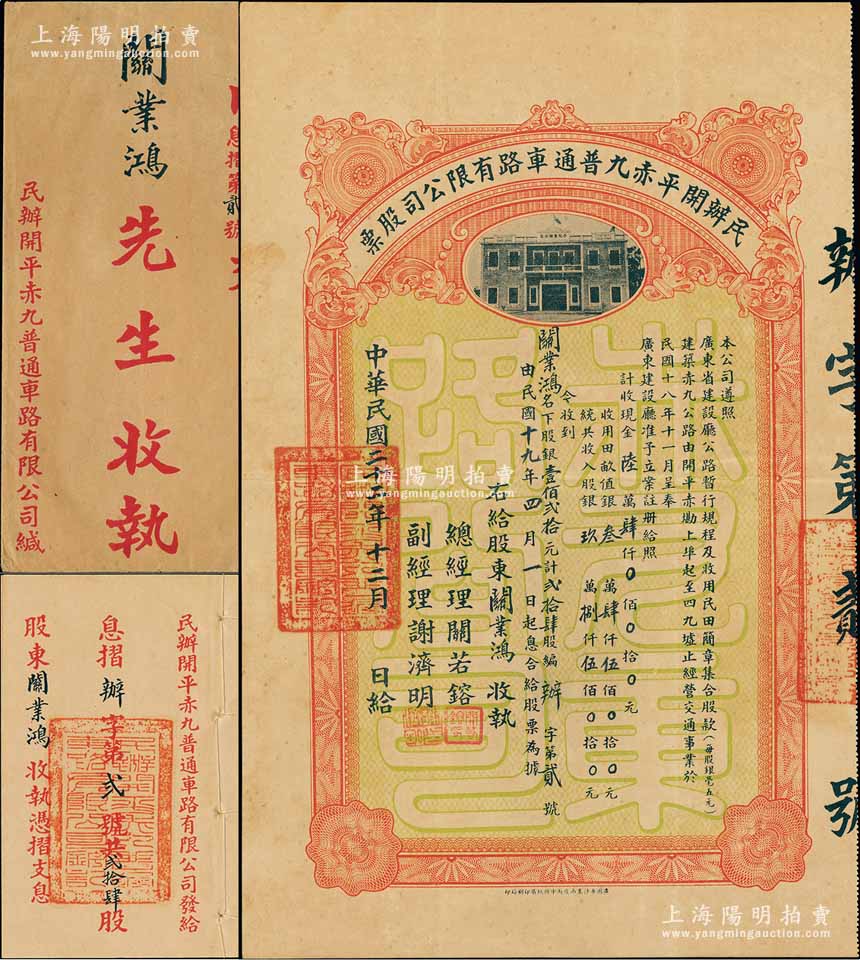 上海陽明拍賣
www.yangmingauction.com
關業鴻先生收執
民辦開平赤九普通車路有限公司緘
息摺第貳號
民辦開平赤九普通車路有限公司股票
本公司遵照
廣東省建設廳公路暫行規程及收用民田簡章集合股款（每股銀毫五元）
建築赤九公路由開平赤墈上埠起至四九墟止經營交通事業於
民國十八年十一月呈奉
廣東建設廳准予立業註册給照
計收現金陸萬肆仟0佰0拾0元
收用田畝值銀叁萬肆仟伍佰0拾0元
統共收入股銀玖萬捌仟伍佰0拾0元
今收到
關業鴻名下股銀壹佰弍拾元計弍拾肆股編辦字第貳號
由民國十九年四月一日起息合給股票為據
右給股東關業鴻收執
總經理關若鎔
副經理謝濟明
中華民國二十二年十二月 日給
辦字第貳號
民辦開平赤九普通車路有限公司發給
息摺辦字第弍號共弍拾肆股
股東關業鴻收執憑摺支息
上海陽明拍賣
www.yangmingauction.com
上海陽明拍賣
www.yangmingauction.com